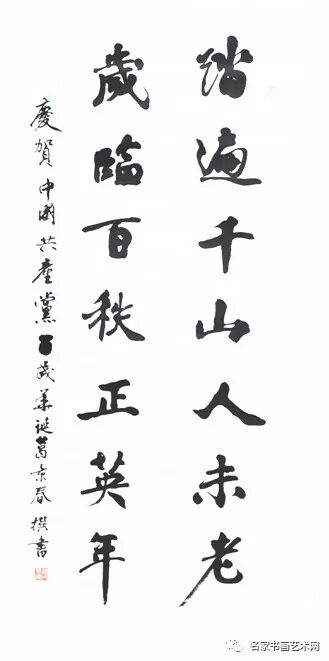 踏遍千山人未老
歲臨百秩正英年
慶賀中國共產黨百歲華誕葛景春撰書
名家书画艺术网